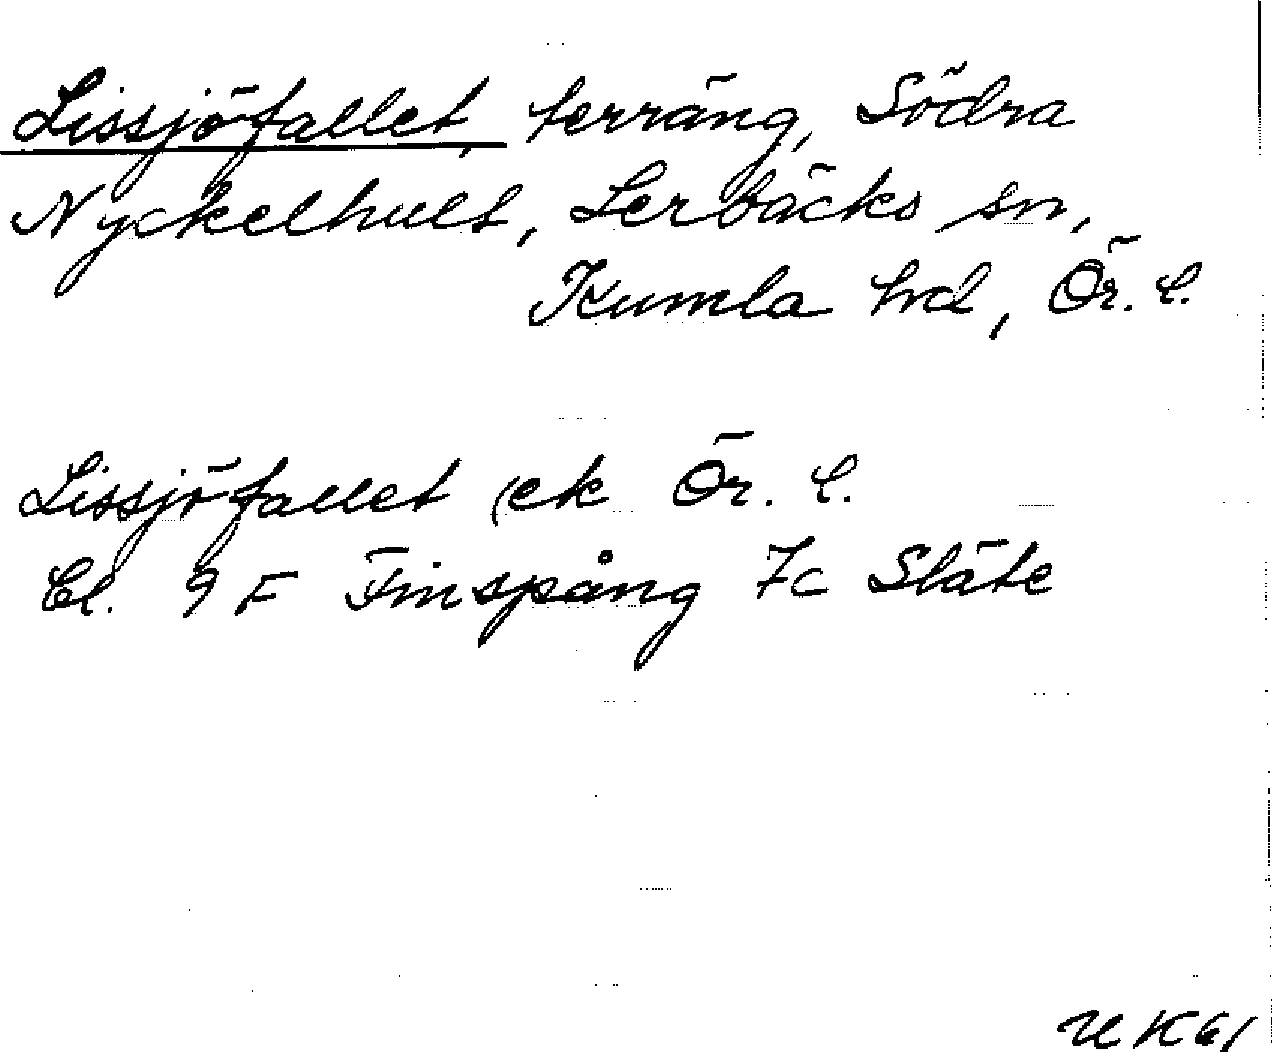 Lissjöfallet, terräng, Södra
Nyckelhult, Lerbäcks sn,
Kumla hd, Ör. l.
Lissjöfallet (ek Ör. l.
bl. 9 F Finspång 7c Släte
UK61